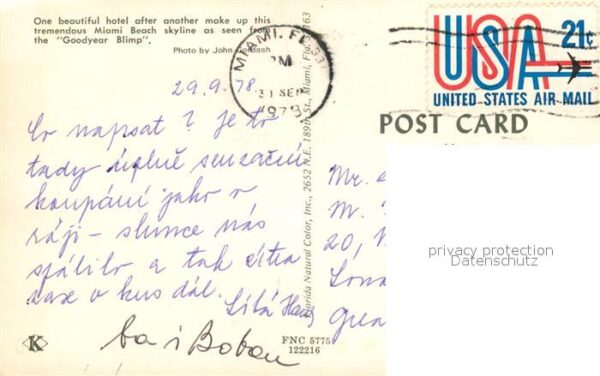 One beautiful hotel after another make up this
tremendous Miami Beach skyline as seen from
the "Goodyear Blimp".
Photo by John
29.9.78
Co napsat? je to
tady úplně senzační
koupání jako v
ráji - slunce nás
spálilo a tak zítra
zase o kus dál.
Líbá
ba i Boban
K
FNC 5775
122216
Florida Natural Color, Inc., 2652 N.E. 189th St., Miami, Fla. 63
MIAMI, FL 331
PM
SEP
1978
USA 21¢
UNITED STATES AIR MAIL
POST CARD
Mr.
M.
20,
privacy protection
Datenschutz